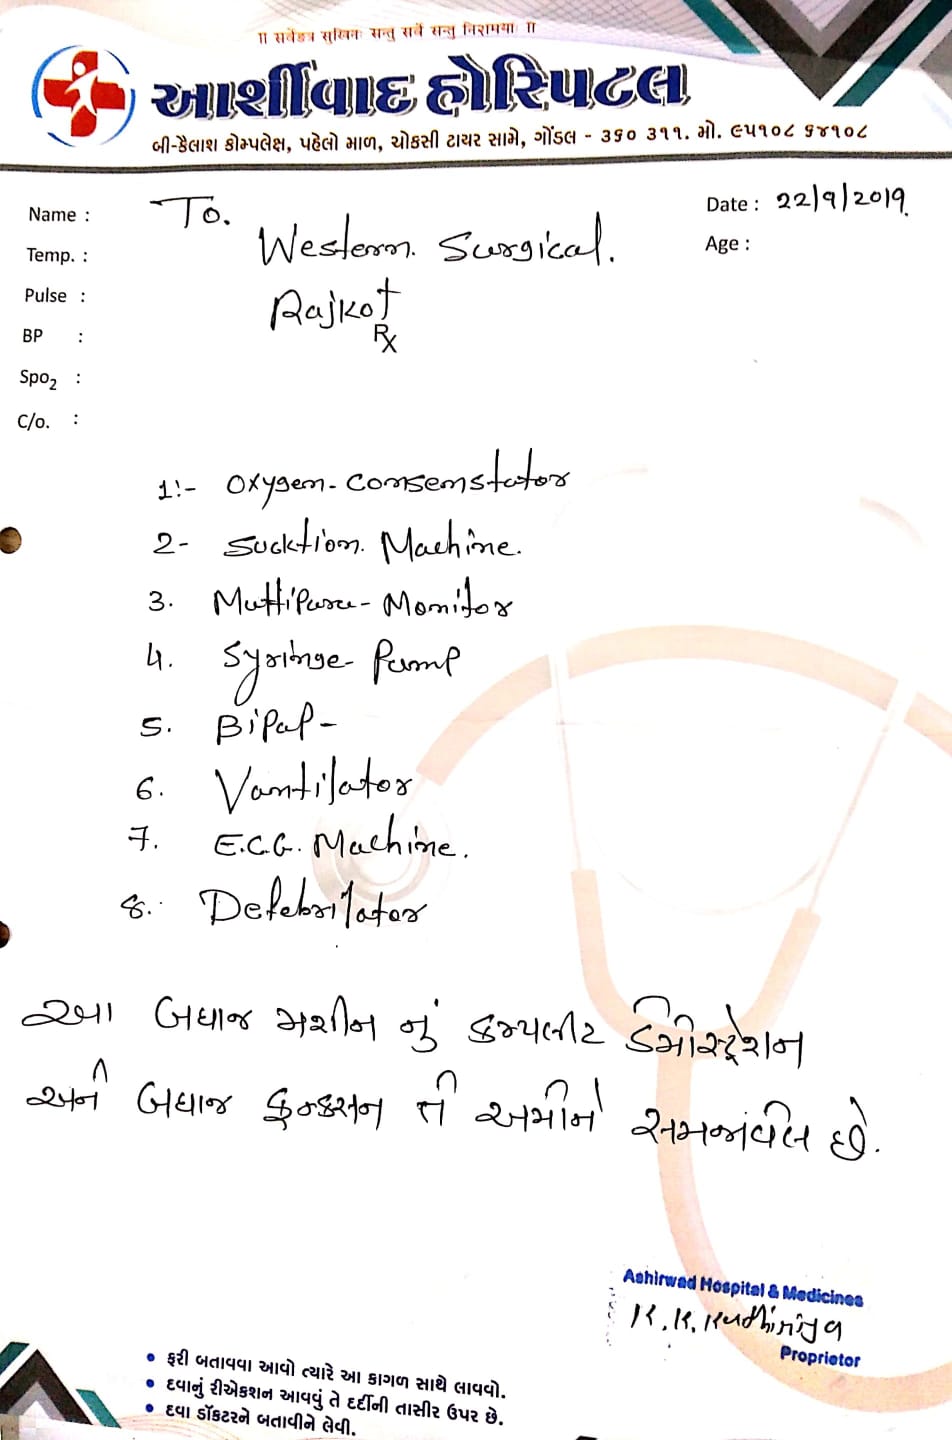 ॥ સર્વેડત્ર સુખિનઃ સન્તુ સર્વે સન્તુ નિરામયાઃ ॥
આર્શીવાદ હોસ્પિટલ
બી-કૈલાશ કોમ્પલેક્ષ, પહેલો માળ, ચોકસી ટાયર સામે, ગોંડલ - ૩૬૦ ૩૧૧. મો. ૯૫૧૦૮ ૬૪૧૦૮
Name : To. Date : 22/9/2019.
Western. Surgical.
Temp. : Age :
Pulse : Rajkot
BP : Rx
Spo2 :
C/o. :
1:- Oxygen-Consenstator
2- Sucktion. Machine.
3. Multipara-Monitor
4. Syringe-Pump
5. BiPaP-
6. Vantilator
7. E.C.G. Machine.
8. Defebrilator
આ બધાજ મશીન નું કમ્પલીટ ડેમોસ્ટ્રેશન
અને બધાજ ફન્કશન તે અમોને સમજાવેલ છે.
Ashirwad Hospital & Medicines
Proprietor
• ફરી બતાવવા આવો ત્યારે આ કાગળ સાથે લાવવો.
• દવાનું રીએકશન આવવું તે દર્દીની તાસીર ઉપર છે.
• દવા ડૉકટરને બતાવીને લેવી.